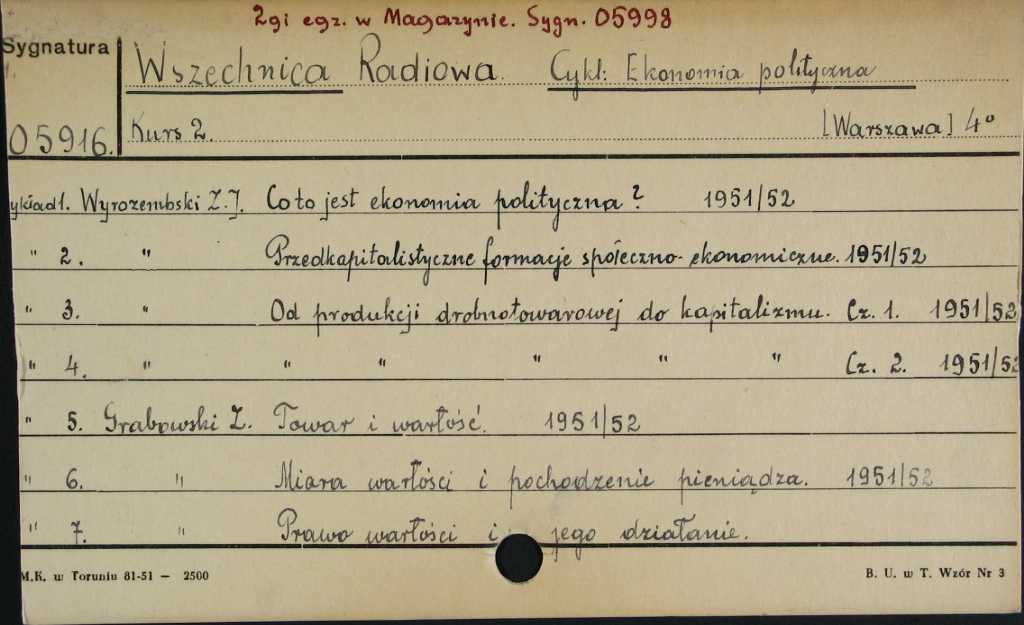 2gi egz. w Magazynie. Sygn. 05998
Sygnatura
Wszechnica Radiowa. Cykl: Ekonomia polityczna
05916. Kurs 2. [Warszawa] 4°
ykład 1. Wyrozembski Z.J. Co to jest ekonomia polityczna? 1951/52
" 2. " Przedkapitalistyczne formacje społeczno-ekonomiczne. 1951/52
" 3. " Od produkcji drobnotowarowej do kapitalizmu. Cz. 1. 1951/52
" 4. " " " " " " Cz. 2. 1951/52
" 5. Grabowski Z. Towar i wartość. 1951/52
" 6. " Miara wartości i pochodzenie pieniądza. 1951/52
" 7. " Prawo wartości i jego działanie.
M.K. w Toruniu 81-51 — 2500
B. U. w T. Wzór Nr 3